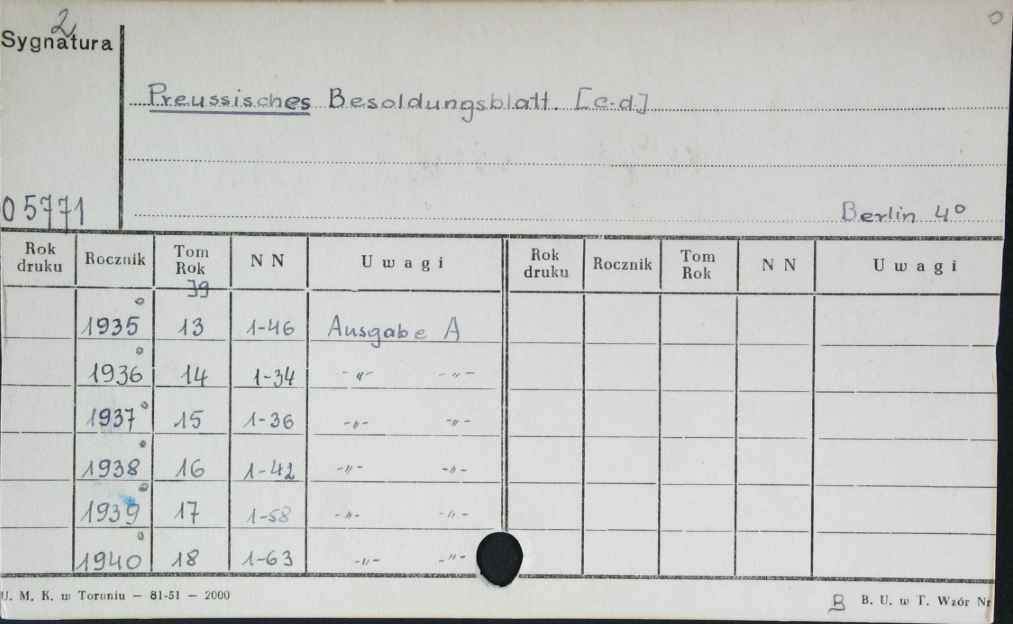 2
Sygnatura
Preussisches Besoldungsblatt. [c.d.]
05771
Berlin 4°
Rok druku Rocznik Tom Rok N N Uwagi Rok druku Rocznik Tom Rok N N Uwagi
Jg
1935 13 1-46 Ausgabe A
1936 14 1-34 -"- -"-
1937 15 1-36 -"- -"-
1938 16 1-42 -"- -"-
1939 17 1-58 -"- -"-
1940 18 1-63 -"- -"-
U. M. K. w Toruniu — 81-51 — 2000
B B. U. w T. Wzór Nr